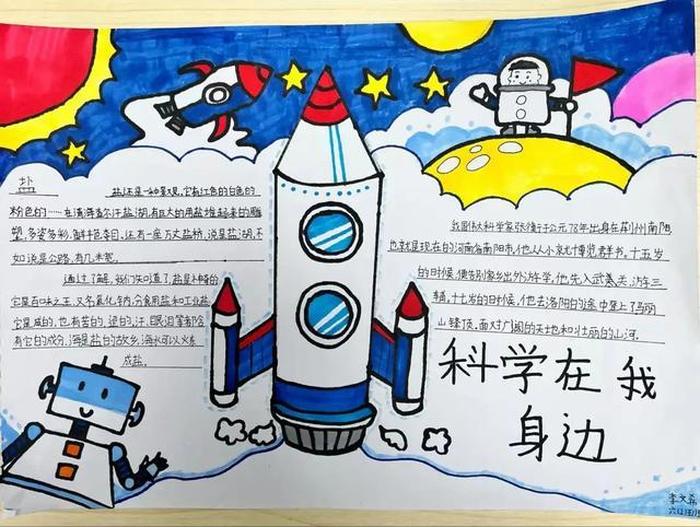 盐
盐还是一种景观,它有红色的白色的
粉色的……在青海察尔汗盐湖,有巨大的用盐堆起来的雕
塑,多姿多彩,鲜艳夺目、还有一座万丈盐桥,说是盐湖,不
如说是公路,有几米宽。
通过了解,我们知道了,盐是神奇的
它是百味之王、又名氯化钠,分食用盐和工业盐
它是咸的,也有苦的、涩的,汗、眼泪等都含
有它的成分,海是盐的故乡,海水可以
成盐。
我国伟大科学家张衡于公元78年出身在荆州南阳
也就是现在的河南省南阳市,他从小就博览群书。十五岁
的时候,便告别家乡出外游学,他先入武关,访车三
辅,十九岁的时候,他去洛阳的途中登上了
山锋顶,面对广阔的天地和壮丽的山河。
科学在我
身边
李文